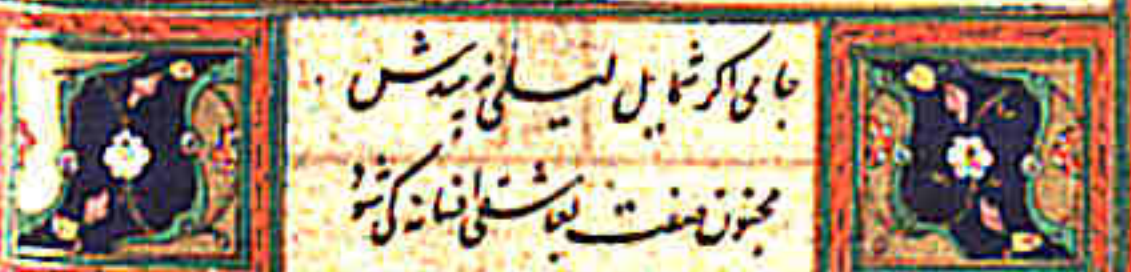 جامی اگر شمایل لیلی نه بیندش
مجنون صفت بعاشقی افسانه کی شود